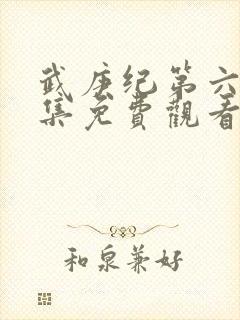 武庚纪第六
集免費觀看
和泉兼好